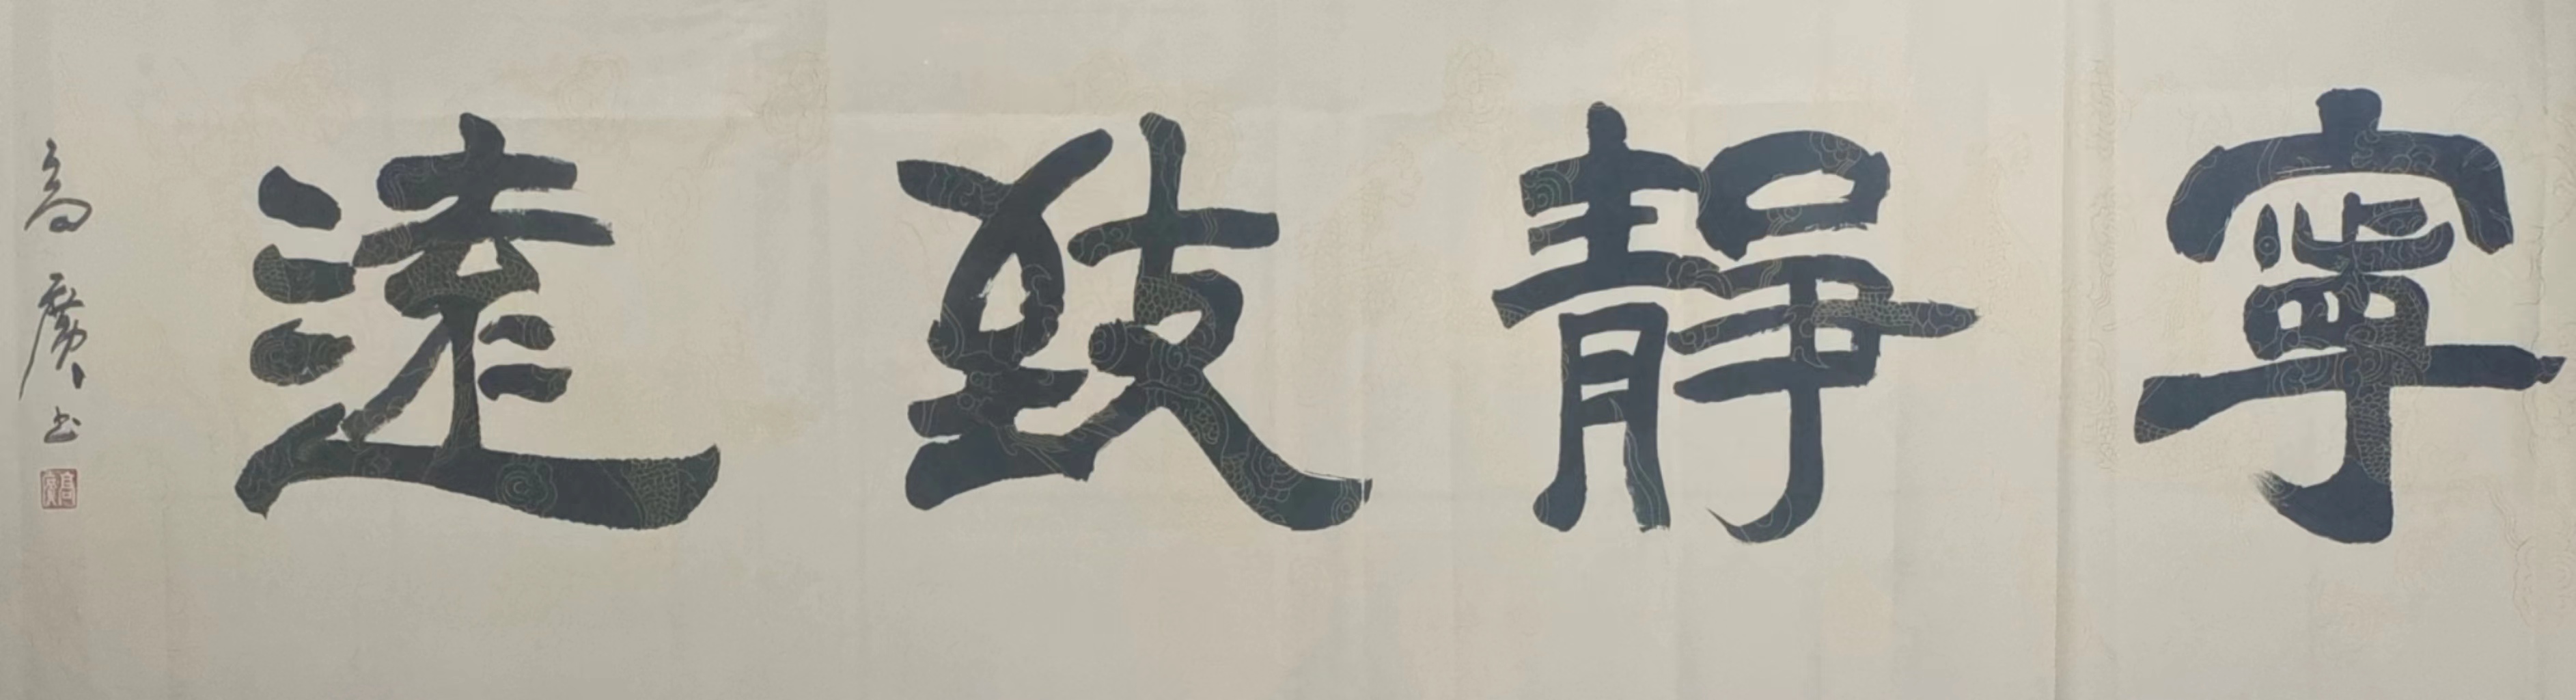 寧靜致遠
高廣书
高廣